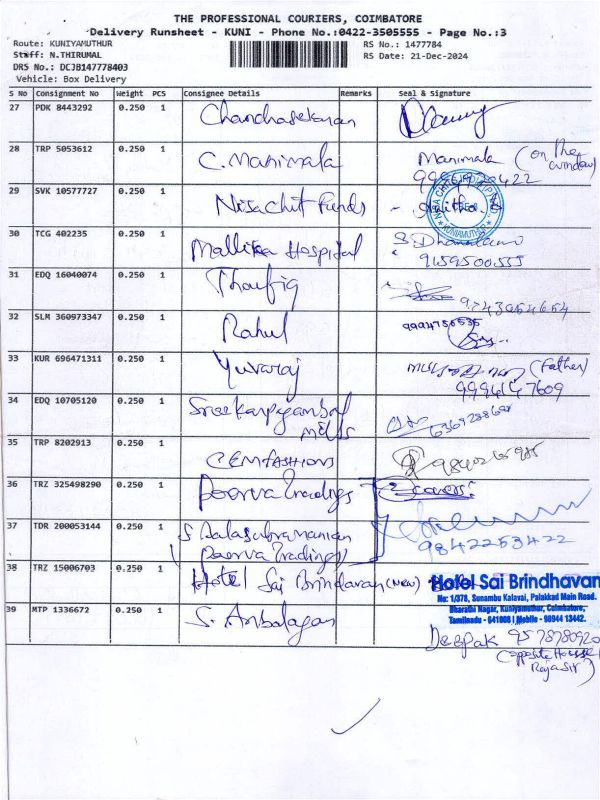 THE PROFESSIONAL COURIERS, COIMBATORE
Delivery Runsheet - KUNI - Phone No.:0422-3505555 - Page No.:3
Route: KUNIYAMUTHUR
RS No.: 1477784
Staff: N.THIRUMAL
RS Date: 21-Dec-2024
DRS No.: DCJB147778403
Vehicle: Box Delivery
S No Consignment No Weight PCS Consignee Details Remarks Seal & Signature
27 PDK 8443292 0.250 1 Chandrasekaran
28 TRP 5053612 0.250 1 C. Manimala Manimala (on the window)
29 SVK 10577727 0.250 1 Nisa Chit Funds
KUNIAMUTHUR
30 TCG 402235 0.250 1 Mallika Hospital
9159500555
31 EDQ 16040074 0.250 1 Thoufiq
32 SLM 360973347 0.250 1 Rahul 9994756535
33 KUR 696471311 0.250 1 Yuvaraj (Father)
9994147609
34 EDQ 10705120 0.250 1
Mills
35 TRP 8202913 0.250 1 CEM FASHIONS
36 TRZ 325498290 0.250 1 Poorva Tradings 2 covers
37 TDR 200053144 0.250 1 S Balasubramanian
(Poorva Tradings) 9842253422
38 TRZ 15006703 0.250 1 Hotel Sai Brindavan (New)
Hotel Sai Brindhavan
No: 1/378, Sunambu Kalavai, Palakkad Main Road.
Bharathi Nagar, Kuniyamuthur, Coimbatore,
Tamilnadu - 641008 | Mobile - 98944 13442.
39 MTP 1336672 0.250 1 S. Anbalagan
Deepak 9578780920
(opposite House
Raja Sir)